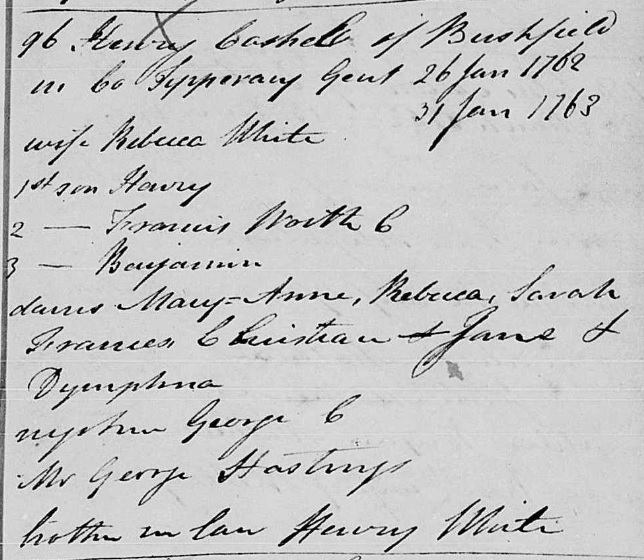 96 Henry Cashell of Bushfield
in Co Typperary Gent 26 Jan 1762
31 Jan 1763
wife Rebecca White
1st son Henry
2 — Francis North C
3 — Benjamin
daurs Mary=Anne, Rebecca, Sarah
Frances Christian & Jane &
Dymphna
nephew George C
Mr George Hastings
brother in law Henry White